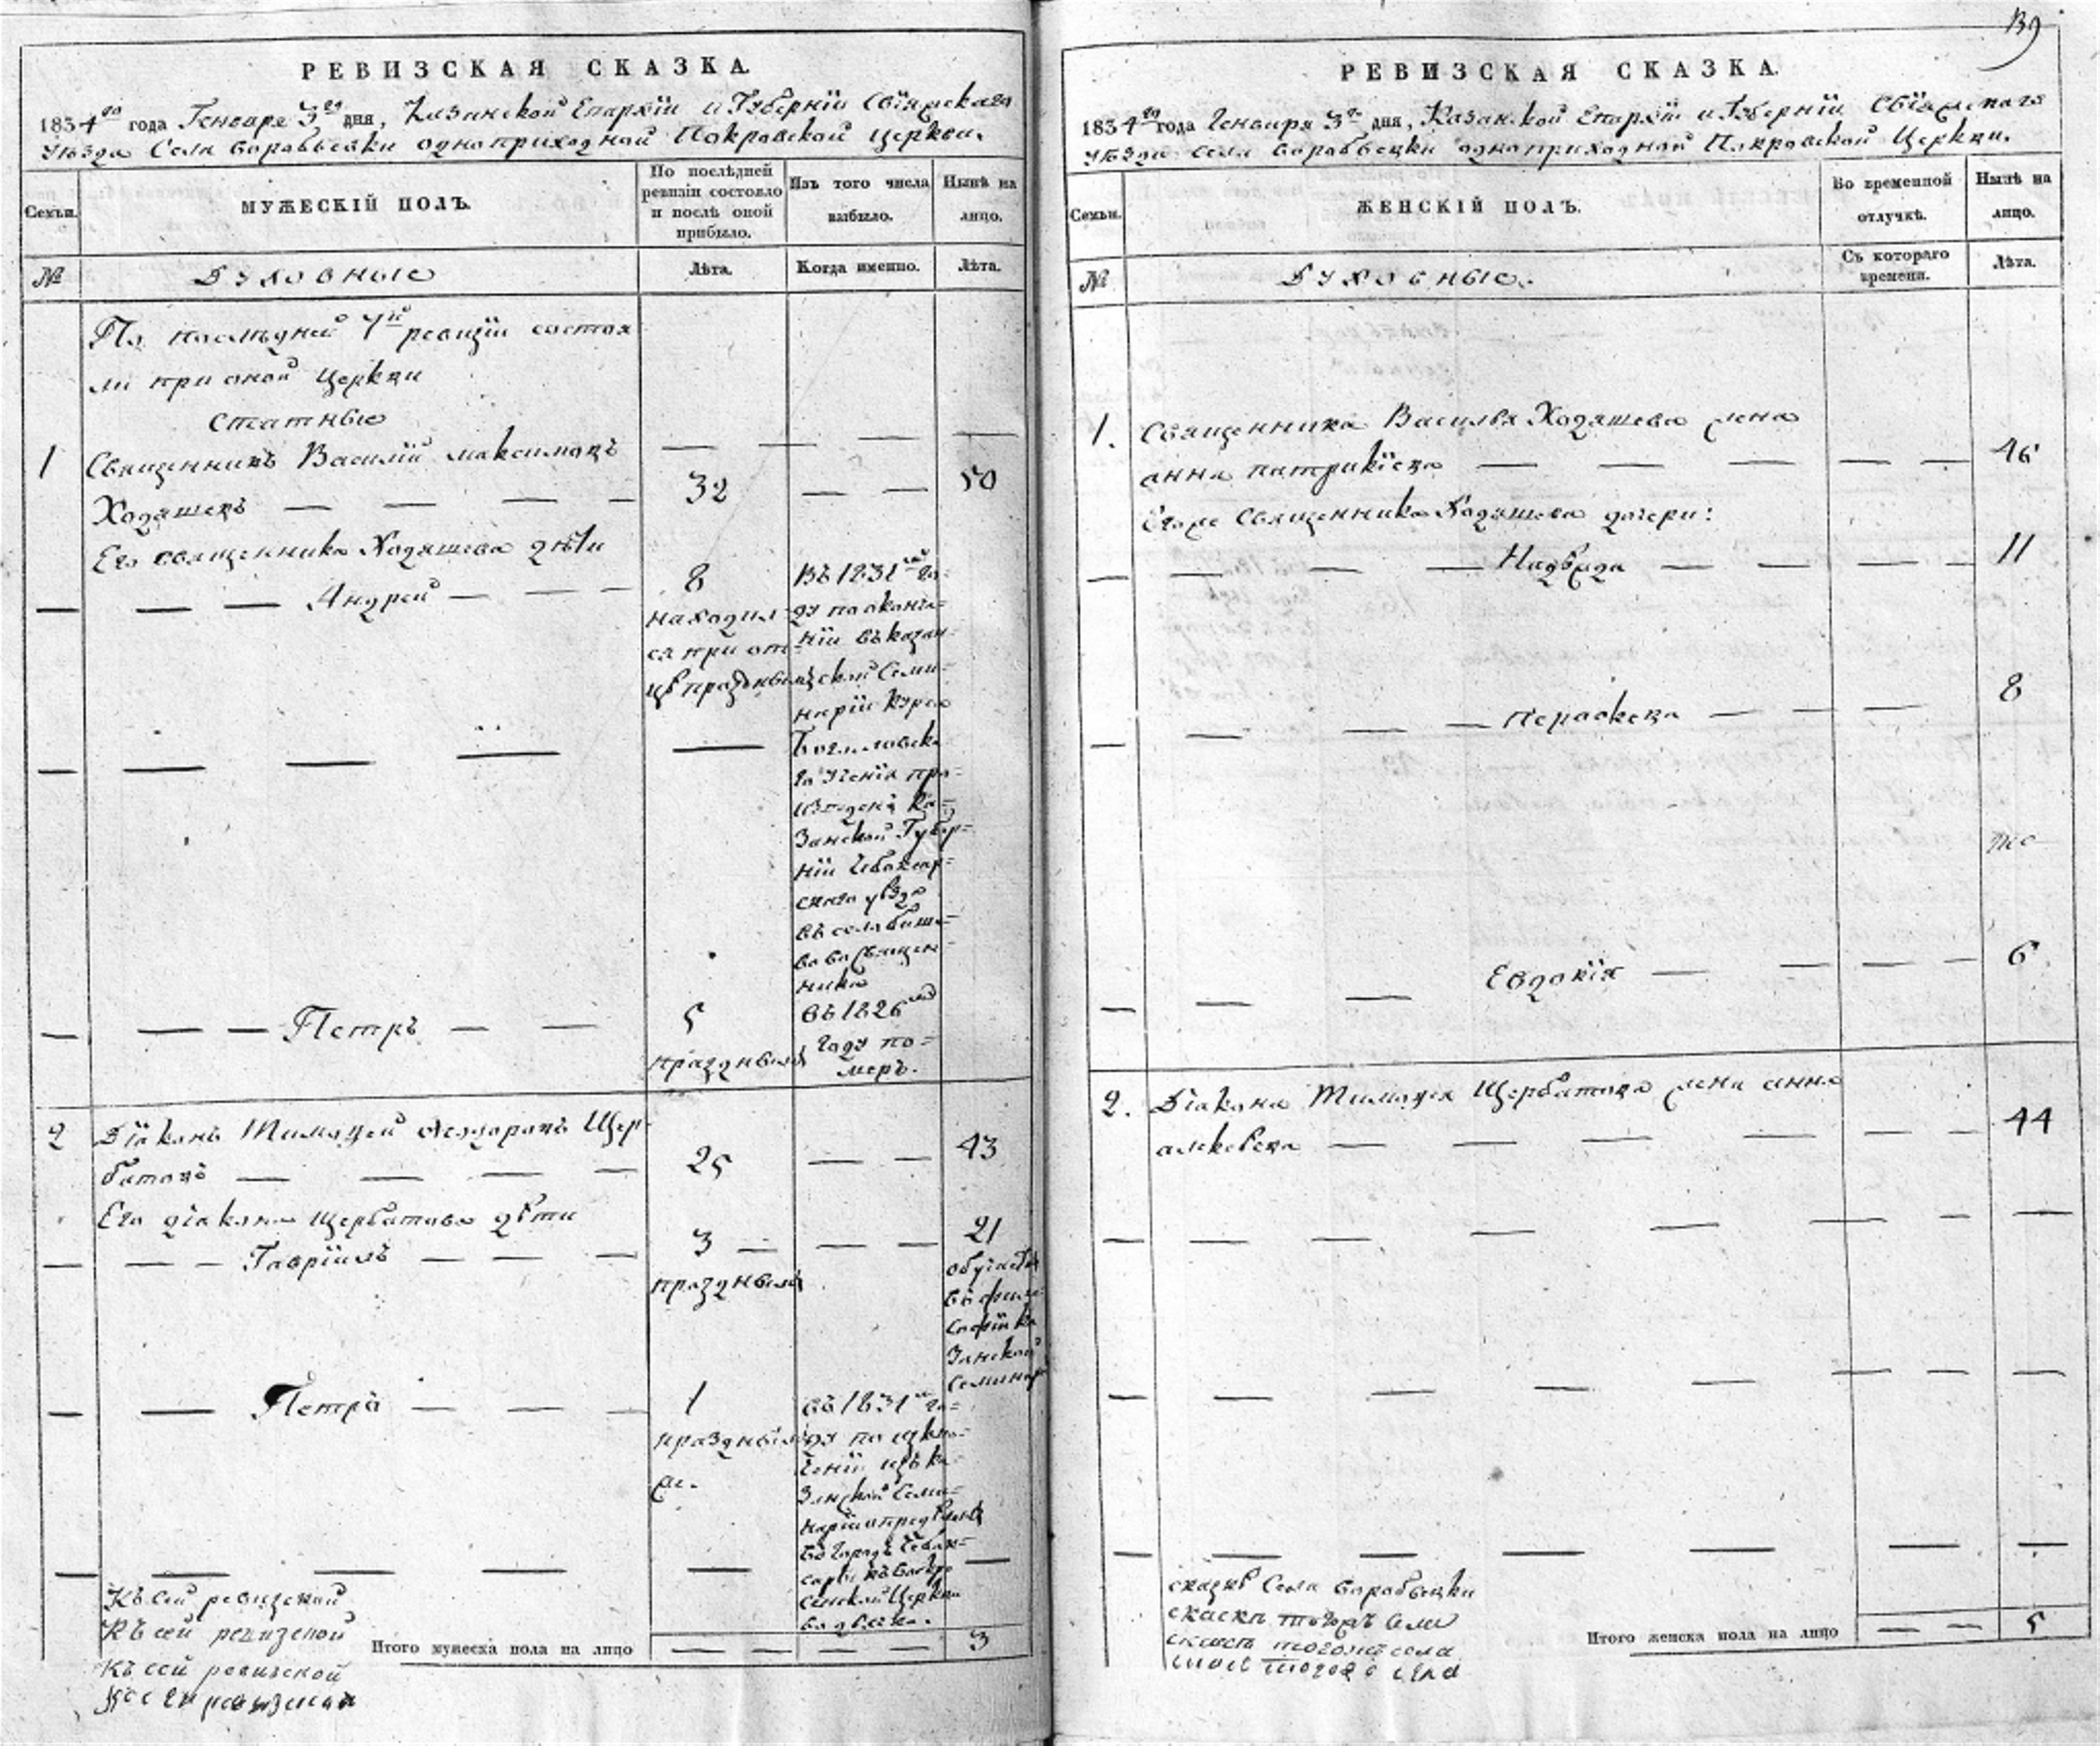 РЕВИЗСКАЯ СКАЗКА.
1834го года Генваря 3го дня, Казанской Епархіи и Губерніи Свіяжскаго
уѣзда Села Воробьевки одноприходной Покровской церкви.
Семьи.
МУЖЕСКІЙ ПОЛЪ.
По послѣдней ревизіи состояло и послѣ оной прибыло.
Изъ того числа выбыло.
Нынѣ на лицо.
№
Духовные
Лѣта.
Когда именно.
Лѣта.
По послѣдней 7й ревизіи состоя
ли при оной Церкви
статные
1
Священникъ Василій Максимовъ
Ходяшевъ
32
50
Его священника Ходяшева дѣти
Андрей
8
находил
ся при от
цѣ празднымъ
Въ 1831м го=
ду по оконча=
ніи въ казан=
ской Семи=
наріи курса
Богословска
го ученія про=
изведенъ Ка=
занской Губер=
ніи Чебоксар=
скаго уѣзда
въ село Бише=
во во Священ=
ника
Петръ
5
празднымъ
въ 1826м
году по=
меръ.
2
Діаконъ Тимофей Федоровъ Щер
батовъ
25
43
Его діакона Щербатова дѣти
Гавріилъ
3
празднымъ
21
обучается
въ фило
софіи Ка
занской
семинар
Петръ
1
празднымъ
же.
въ 1831м го=
ду по исклю=
ченіи изъ Ка
занской Семи=
наріи опредѣленъ
въ городъ Чебок=
сары къ Воскре
сенской Церкви
во дьячка.
Къ сей ревизской
Къ сей ревизской
Къ сей ревизской
Ксей ревизской
Итого мужеска пола на лицо
3
139
РЕВИЗСКАЯ СКАЗКА.
1834го года Генваря 3го дня, Казанской Епархіи и Губерніи Свіяжскаго
уѣзда села Воробьевки одноприходной Покровской Церкви.
Семьи.
ЖЕНСКІЙ ПОЛЪ.
Во временной отлучкѣ.
Нынѣ на лицо.
№
Духовные.
Съ котораго времени.
Лѣта.
1.
Священника Василья Ходяшева жена
анна патрикіева
46
Егоже Священника Ходяшева дочери:
Надѣжда
11
Параскева
8
Евдокія
6
2.
Діакона Тимофея Щербатова жена анна
алексѣева
44
сказкѣ Села Воробьевки
скаске тогожъ села
скаске тогоже села
скаске тогоже села
Итого женска пола на лицо
5